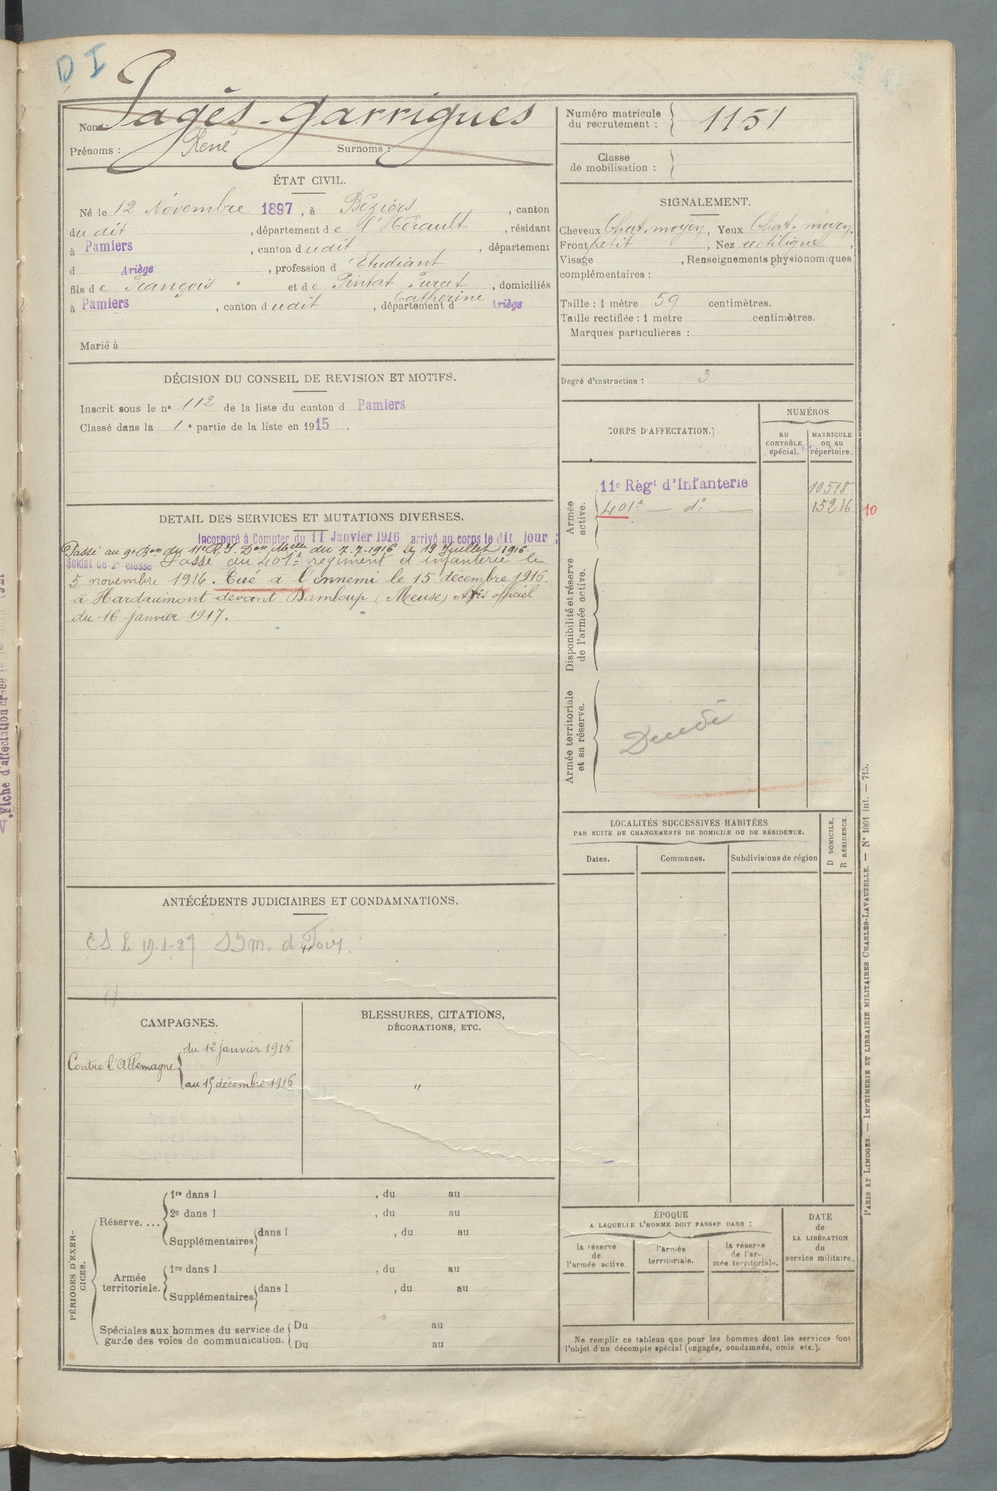 D I
Nom : Pagès-Garrigues
Prénoms : René Surnoms :
Numéro matricule du recrutement : 1151
Classe de mobilisation :
ÉTAT CIVIL.
Né le 12 Novembre 1897, à Béziers, canton
du dit, département de l'Hérault, résidant
à Pamiers, canton dudit, département
d Ariège, profession d'Etudiant
fils de François et de Pintat Purcet Catherine, domiciliés
à Pamiers, canton dudit, département d Ariège
Marié à
SIGNALEMENT.
Cheveux Chat. moyen, Yeux Chat. moyen,
Front petit, Nez rectiligne,
Visage , Renseignements physionomiques
complémentaires :
Taille : 1 mètre 59 centimètres.
Taille rectifiée : 1 mètre centimètres.
Marques particulières :
Degré d'instruction : 3
DÉCISION DU CONSEIL DE REVISION ET MOTIFS.
Inscrit sous le n° 112 de la liste du canton d Pamiers
Classé dans la 1e partie de la liste en 1915.
CORPS D'AFFECTATION.
NUMÉROS
AU CONTRÔLE spécial.
MATRICULE ou au répertoire.
Armée active.
11e Régt d'Infanterie 10518
401e — do — 15216 10
Disponibilité et réserve de l'armée active.
Armée territoriale et sa réserve.
DÉTAIL DES SERVICES ET MUTATIONS DIVERSES.
Incorporé à Compter du 11 Janvier 1916 arrivé au corps le dit jour ;
Passé au 9e Bon du 11e R.I. Don Melle du 7.7.1916 le 19 Juillet 1916
Soldat de 2e classe Passé au 401e régiment d'infanterie le
5 novembre 1916. Tué à l'ennemi le 15 décembre 1916
à Hardaumont devant Damloup (Meuse) Avis officiel
du 16 janvier 1917.
LOCALITÉS SUCCESSIVES HABITÉES
PAR SUITE DE CHANGEMENTS DE DOMICILE OU DE RÉSIDENCE.
Dates. Communes. Subdivisions de région
D DOMICILE,
R RÉSIDENCE.
ANTÉCÉDENTS JUDICIAIRES ET CONDAMNATIONS.
CAMPAGNES.
Contre l'Allemagne
du 12 janvier 1916
au 15 décembre 1916
BLESSURES, CITATIONS,
DÉCORATIONS, ETC.
"
PÉRIODES D'EXERCICES.
Réserve....
1re dans l , du au
2e dans l , du au
Supplémentaires dans l , du au
Armée territoriale.
1re dans l , du au
Supplémentaires dans l , du au
Spéciales aux hommes du service de
garde des voies de communication.
Du au
Du au
ÉPOQUE
A LAQUELLE L'HOMME DOIT PASSER DANS :
la réserve de l'armée active.
l'armée territoriale.
la réserve de l'armée territoriale.
DATE de LA LIBÉRATION du service militaire.
Ne remplir ce tableau que pour les hommes dont les services font
l'objet d'un décompte spécial (engagés, condamnés, omis etc.).
PARIS ET LIMOGES. — IMPRIMERIE ET LIBRAIRIE MILITAIRES CHARLES-LAVAUZELLE. — N° 1001 int. — 715.